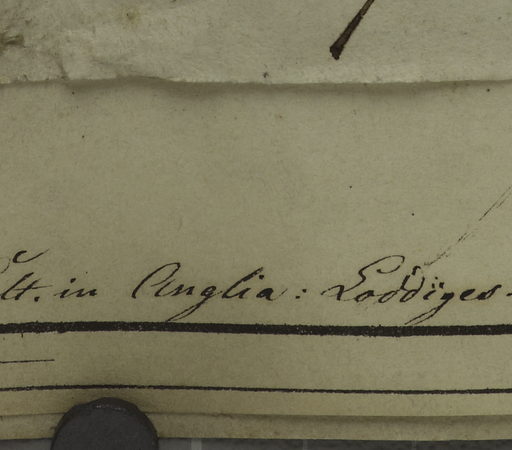 Cult. in Anglia: Loddiges.